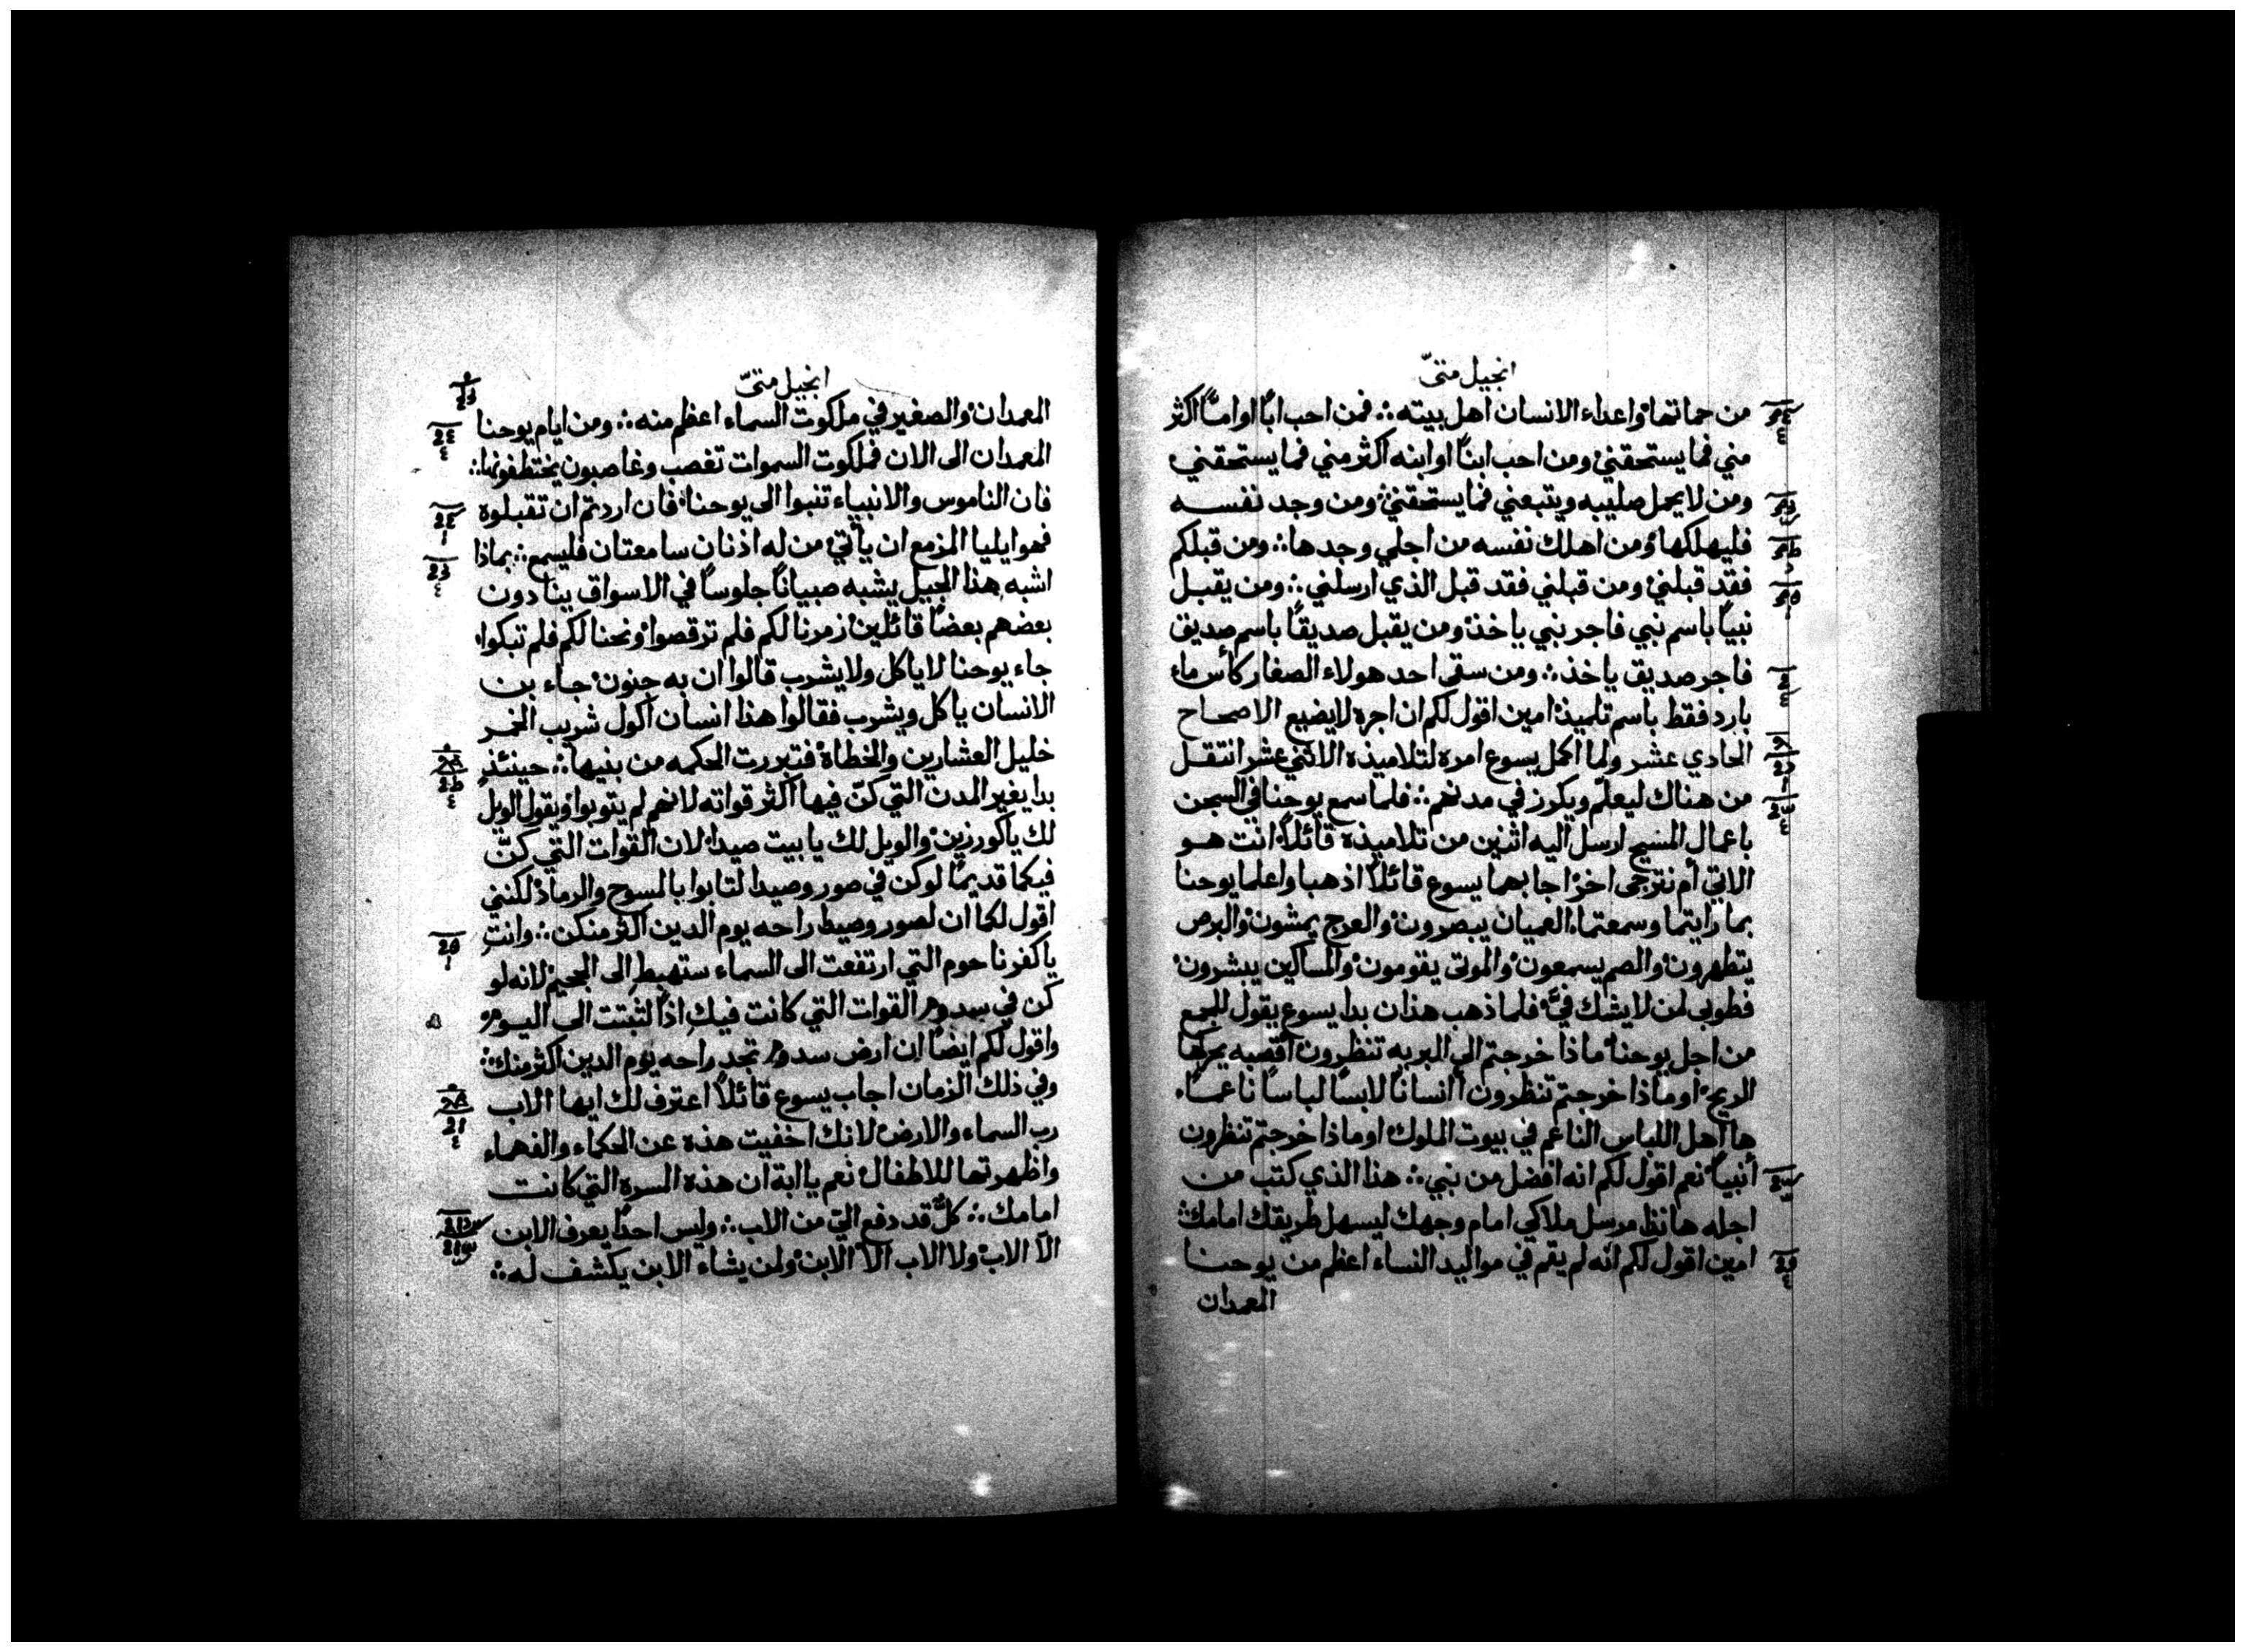 انجيل متىّ
من حماتها واعداء الانسان اهل بيته فمن احب ابًا او امًّا اكثر
مني فما يستحقني ومن احب ابنًا او ابنه اكثر مني فما يستحقني
ومن لا يحمل صليبه ويتبعني فما يستحقني ومن وجد نفسه
فليهلكها ومن اهلك نفسه من اجلي وجدها ومن قبلكم
فقد قبلني ومن قبلني فقد قبل الذي ارسلني ومن يقبل
نبيًا باسم نبي فاجر نبي ياخذ ومن يقبل صديقًا باسم صديق
فاجر صديق ياخذ ومن سقى احد هولاء الصغار كأس ماء
بارد فقط باسم تلميذ امين اقول لكم ان اجره لا يضيع الاصحاح
الحادي عشر ولما اكمل يسوع امره لتلاميذه الاثني عشر انتقل
من هناك ليعلّم ويكرز في مدنهم فلما سمع يوحنا في السجن
باعمال المسيح ارسل اليه اثنين من تلاميذه قائلاً انت هو
الاتي أم نترجى اخر اجابهما يسوع قائلاً اذهبا واعلما يوحنا
بما رايتما وسمعتما العميان يبصرون والعرج يمشون والبرص
يتطهرون والصم يسمعون والموتى يقومون والمساكين يبشرون
فطوبى لمن لا يشك فيَّ فلما ذهب هذان بدا يسوع يقول للجمع
من اجل يوحنا ماذا خرجتم الى البريه تنظرون أقصبه يحركها
الريح او ماذا خرجتم تنظرون أانسانًا لابسًا لباسًا ناعمًا
ها اهل اللباس الناعم في بيوت الملوك او ماذا خرجتم تنظرون
أنبيًا نعم اقول لكم انه افضل من نبي هذا الذي كتب من
اجله هانذا مرسل ملاكي امام وجهك ليسهل طريقك امامك
امين اقول لكم انّه لم يقم في مواليد النساء اعظم من يوحنا
المعمدان
انجيل متىّ
المعمدان والصغير في ملكوت السماء اعظم منه ومن ايام يوحنا
المعمدان الى الان فملكوت السموات تغصب وغاصبون يختطفونها
فان الناموس والانبياء تنبوا الى يوحنا فان اردتم ان تقبلوه
فهو ايليا المزمع ان يأتي من له اذنان سامعتان فليسمع بماذا
اشبه هذا الجيل يشبه صبيانًا جلوسًا في الاسواق ينادون
بعضهم بعضًا قائلين زمرنا لكم فلم ترقصوا ونحنا لكم فلم تبكوا
جاء يوحنا لا ياكل ولا يشرب قالوا ان به جنون جاء بن
الانسان ياكل ويشرب فقالوا هذا انسان اكول شريب الخمر
خليل العشارين والخطاة فتبررت الحكمه من بنيها حينئذ
بدا يغير المدن التي كنّ فيها اكثر قواته لانهم لم يتوبوا ويقول الويل
لك يا كورزين والويل لك يا بيت صيدا لان القوات التي كنّ
فيكما قديمًا لو كن في صور وصيدا لتابوا بالسوح والرماد لكنني
اقول لكما ان لصور وصيدا راحه يوم الدين اكثر منكن وانت
يا كفرناحوم التي ارتفعت الى السماء ستهبط الى الجحيم لانه لو
كن في سدوم القوات التي كانت فيك اذًا لثبتت الى اليوم
واقول لكم ايضًا ان ارض سدوم تجد راحه يوم الدين اكثر منك
وفي ذلك الزمان اجاب يسوع قائلاً اعترف لك ايها الاب
رب السماء والارض لانك اخفيت هذه عن الحكماء والفهماء
واظهرتها للاطفال نعم يا ابة ان هذه المسرة التي كانت
امامك كلٌّ قد دفع اليّ من الاب وليس احدًا يعرف الابن
الاّ الاب ولا الاب الاّ الابن ولمن يشاء الابن يكشف له